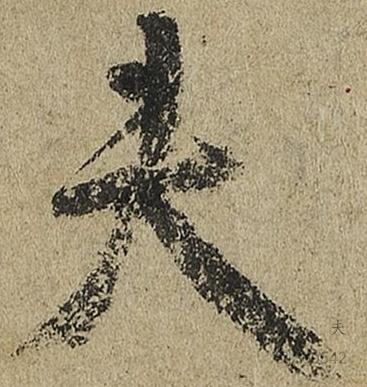 夫
夫
542